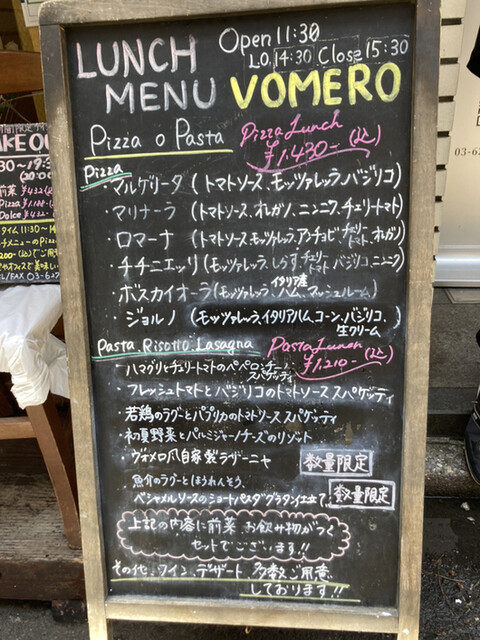 LUNCH
MENU VOMERO
Open 11:30
L.O. 14:30 Close 15:30
Pizza o Pasta
Pizza Lunch
¥1.430- (込)
Pizza
・マルゲリータ (トマトソース、モッツァレッラ、バジリコ)
・マリナーラ (トマトソース、オレガノ、ニンニク、チェリートマト)
・ロマーナ (トマトソース、モッツァレッラ、アンチョビ、チェリートマト、オレガノ)
・チチニエッリ (モッツァレッラ、しらす、チェリートマト、バジリコ、ニンニク)
・ボスカイオーラ (モッツァレッラ、イタリア産ハム、マッシュルーム)
・ジョルノ (モッツァレッラ、イタリアハム、コーン、バジリコ、生クリーム)
Pasta, Risotto, Lasagna
Pasta Lunch
¥1.210- (込)
・ハマグリとチェリートマトのペペロンチーノスパゲッティ
・フレッシュトマトとバジリコのトマトソーススパゲッティ
・若鶏のラグーとパプリカのトマトソーススパゲッティ
・初夏野菜とパルミジャーノチーズのリゾット
・ヴォメロ風自家製ラザーニャ 数量限定
魚介のラグーとほうれんそう、
ベシャメルソースのショートパスタグラタン仕立て 数量限定
上記の内容に前菜、お飲み物がつく
セットでございます!!
その他、ワイン、デザート、多数ご用意
しております!!
AKE OU
前菜 ¥432
Pizza
Dolce ¥432
タイム 11:30〜